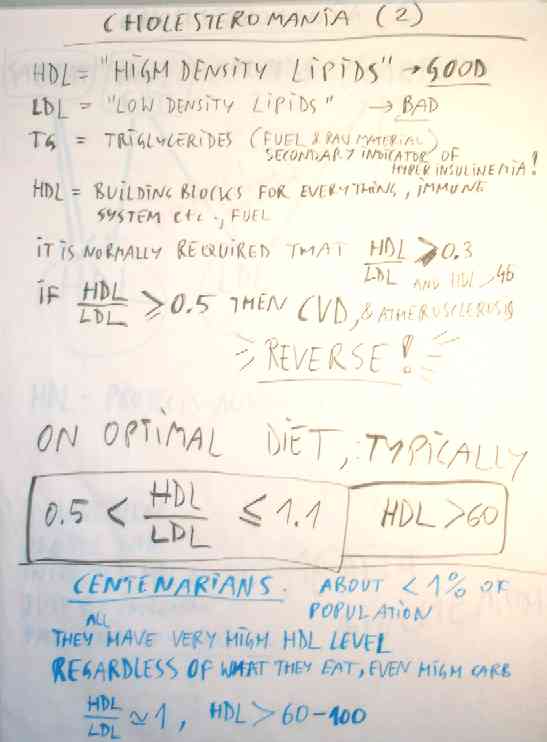 CHOLESTEROMANIA (2)
HDL = "HIGH DENSITY LIPIDS" → GOOD
LDL = "LOW DENSITY LIPIDS" → BAD
TG = TRIGLYCERIDES (FUEL & RAW MATERIAL)
SECONDARY INDICATOR OF
HYPERINSULINEMIA!
HDL = BUILDING BLOCKS FOR EVERYTHING, IMMUNE
SYSTEM etc., FUEL
IT IS NORMALLY REQUIRED THAT HDL/LDL > 0.3
AND HDL > 45
IF HDL/LDL ≥ 0.5 THEN CVD, & ATHEROSCLEROSIS
REVERSE!
ON OPTIMAL DIET, TYPICALLY
0.5 < HDL/LDL ≤ 1.1 HDL > 60
CENTENARIANS. ABOUT < 1% OF
POPULATION
ALL
THEY HAVE VERY HIGH HDL LEVEL
REGARDLESS OF WHAT THEY EAT, EVEN HIGH CARB
HDL/LDL ≃ 1, HDL > 60-100